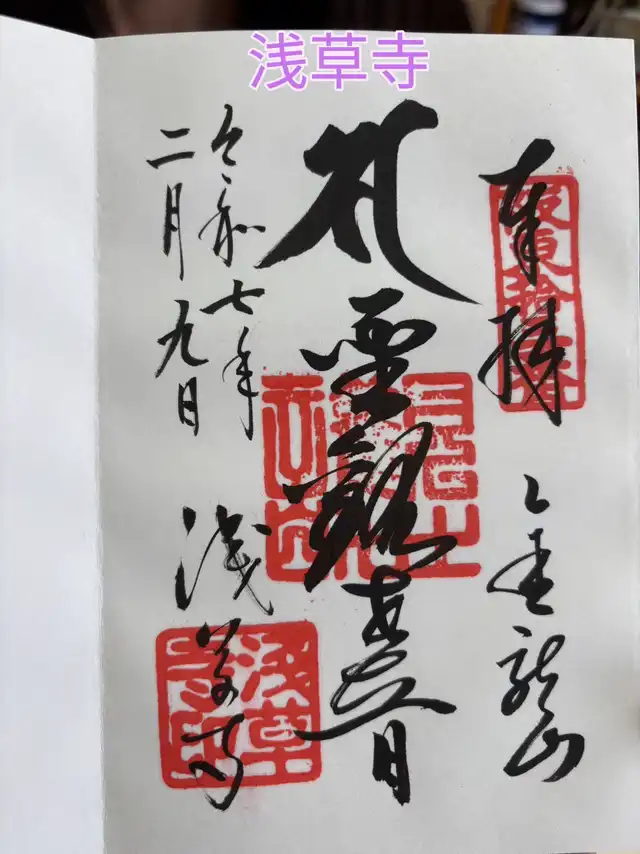 浅草寺
奉拝
金龍山
聖観世音
令和七年
二月九日
浅草寺
浅草寺印